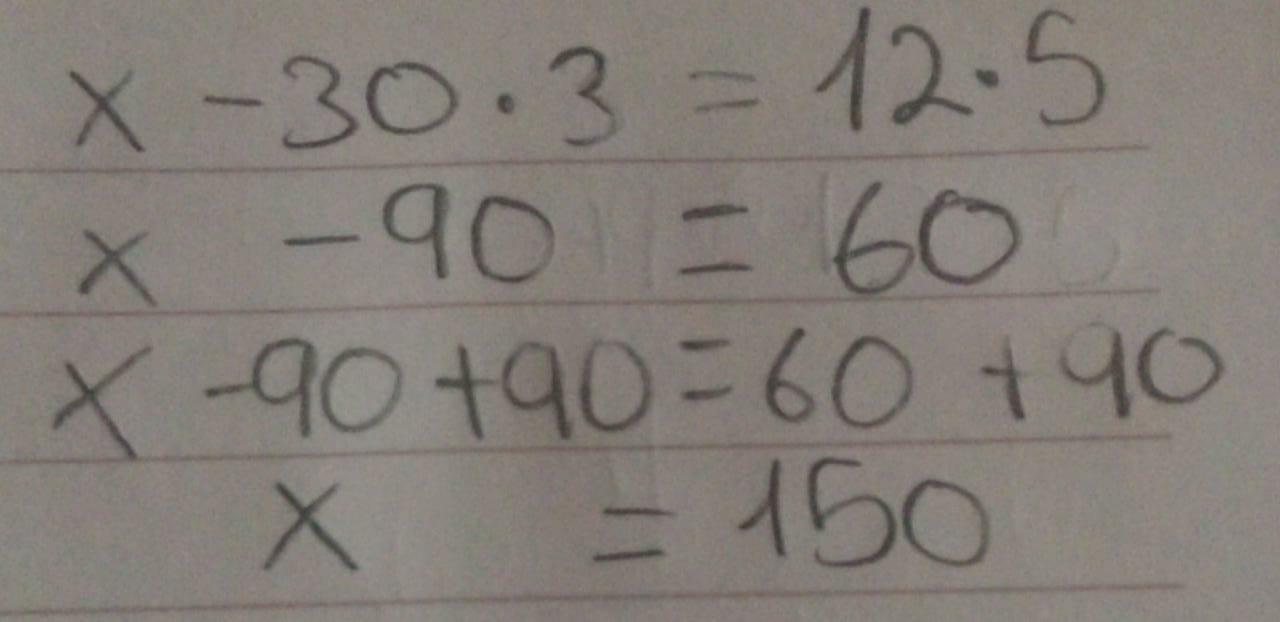 x - 30 · 3 = 12 · 5
x - 90 = 60
x - 90 + 90 = 60 + 90
x = 150